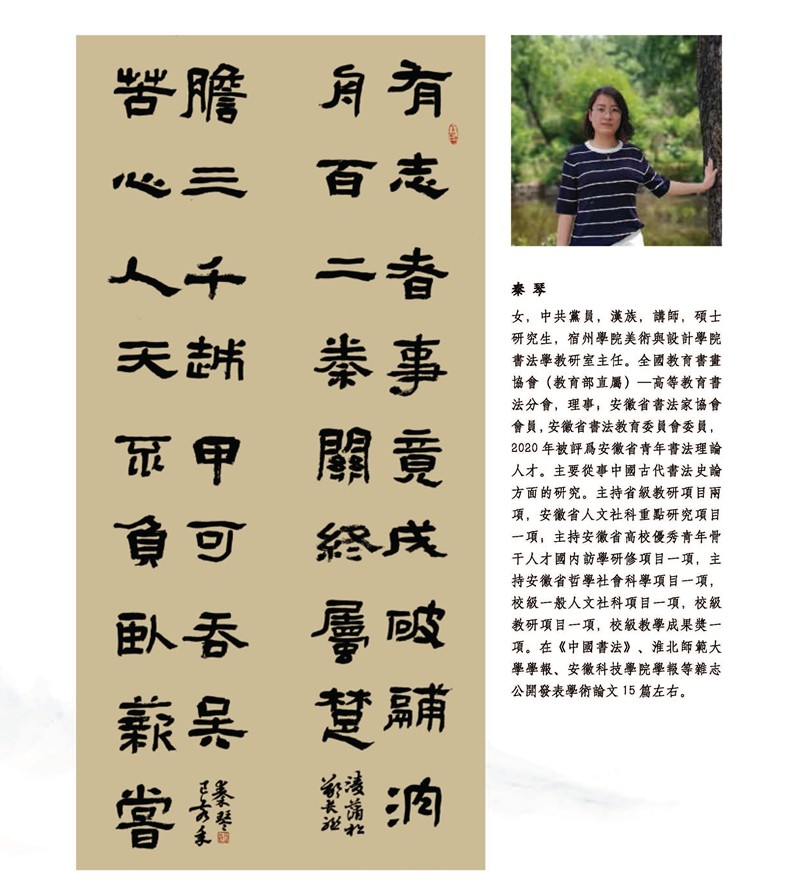 有志者事竟成破鬴沈
舟百二秦關終屬楚
蒲松
齡長聯
苦心人天不負臥薪嘗
膽三千越甲可吞吳
秦琴
秦 琴
女，中共黨員，漢族，講師，碩士
研究生，宿州學院美術與設計學院
書法學教研室主任。全國教育書畫
協會（教育部直屬）—高等教育書
法分會，理事；安徽省書法家協會
會員，安徽省書法教育委員會委員，
2020 年被評爲安徽省青年書法理論
人才。主要從事中國古代書法史論
方面的研究。主持省級教研項目兩
項，安徽省人文社科重點研究項目
一項；主持安徽省高校優秀青年骨
干人才國内訪學研修項目一項，主
持安徽省哲學社會科學項目一項，
校級一般人文社科項目一項，校級
教研項目一項，校級教學成果獎一
項。在《中國書法》、淮北師範大
學學報、安徽科技學院學報等雜志
公開發表學術論文 15 篇左右。